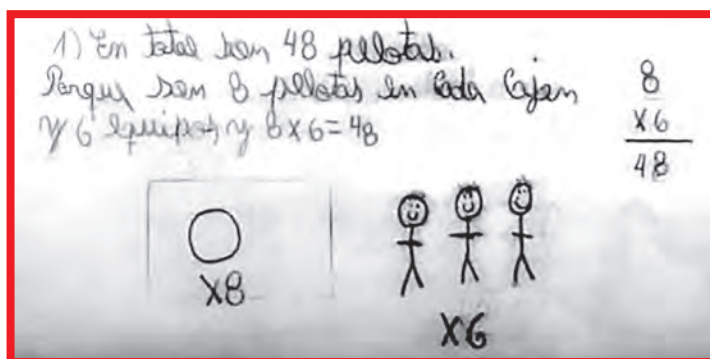 1) En total son 48 pelotas.
Porque son 8 pelotas en cada cajon
y 6 equipos y 8x6=48
8
x6
48
x8
x6